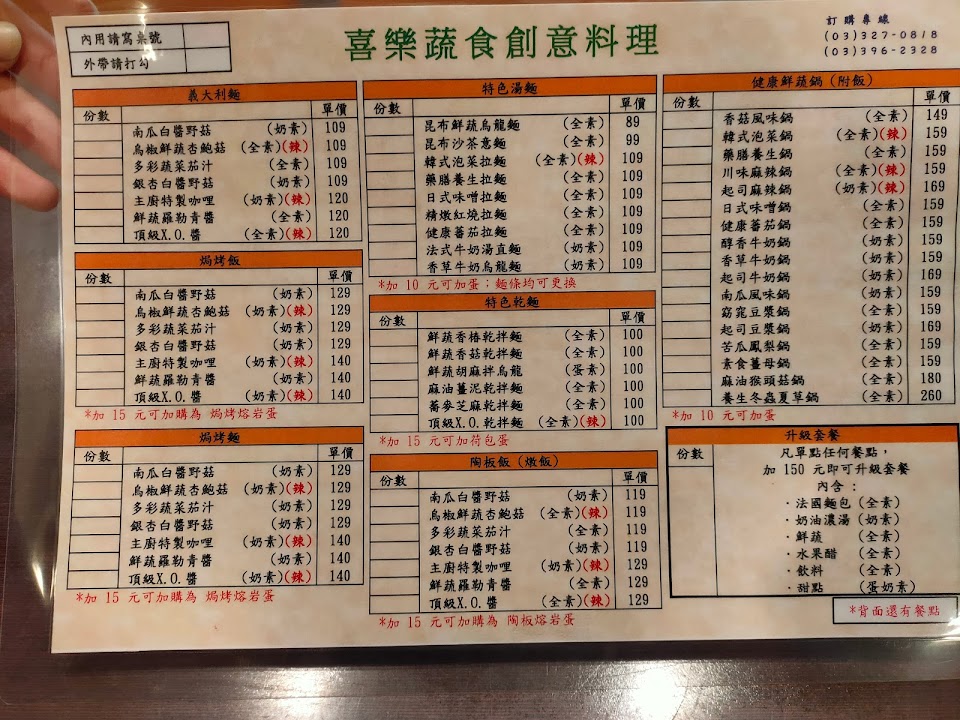 內用請寫桌號
外帶請打勾
喜樂蔬食創意料理
訂購專線
(03)327-0818
(03)396-2328
義大利麵
份數 單價
南瓜白醬野菇 (奶素) 109
烏椒鮮蔬杏鮑菇 (全素)(辣) 109
多彩蔬菜茄汁 (全素) 109
銀杏白醬野菇 (奶素) 109
主廚特製咖哩 (奶素)(辣) 120
鮮蔬羅勒青醬 (全素) 120
頂級X.O.醬 (全素)(辣) 120
焗烤飯
份數 單價
南瓜白醬野菇 (奶素) 129
烏椒鮮蔬杏鮑菇 (奶素)(辣) 129
多彩蔬菜茄汁 (奶素) 129
銀杏白醬野菇 (奶素) 129
主廚特製咖哩 (奶素)(辣) 140
鮮蔬羅勒青醬 (奶素) 140
頂級X.O.醬 (奶素)(辣) 140
*加 15 元可加購為 焗烤熔岩蛋
焗烤麵
份數 單價
南瓜白醬野菇 (奶素) 129
烏椒鮮蔬杏鮑菇 (奶素)(辣) 129
多彩蔬菜茄汁 (奶素) 129
銀杏白醬野菇 (奶素) 129
主廚特製咖哩 (奶素)(辣) 140
鮮蔬羅勒青醬 (奶素) 140
頂級X.O.醬 (奶素)(辣) 140
*加 15 元可加購為 焗烤熔岩蛋
特色湯麵
份數 單價
昆布鮮蔬烏龍麵 (全素) 89
昆布沙茶意麵 (全素) 99
韓式泡菜拉麵 (全素)(辣) 109
藥膳養生拉麵 (全素) 109
日式味噌拉麵 (全素) 109
精燉紅燒拉麵 (全素) 109
健康蕃茄拉麵 (全素) 109
法式牛奶湯直麵 (奶素) 109
香草牛奶烏龍麵 (奶素) 109
*加 10 元可加蛋；麵條均可更換
特色乾麵
份數 單價
鮮蔬香椿乾拌麵 (全素) 100
鮮蔬香菇乾拌麵 (全素) 100
鮮蔬胡麻拌烏龍 (蛋素) 100
麻油薑泥乾拌麵 (全素) 100
蕎麥芝麻乾拌麵 (全素) 100
頂級X.O.乾拌麵 (全素)(辣) 100
*加 15 元可加荷包蛋
陶板飯（燉飯）
份數 單價
南瓜白醬野菇 (奶素) 119
烏椒鮮蔬杏鮑菇 (全素)(辣) 119
多彩蔬菜茄汁 (全素) 119
銀杏白醬野菇 (奶素) 119
主廚特製咖哩 (奶素)(辣) 129
鮮蔬羅勒青醬 (全素) 129
頂級X.O.醬 (全素)(辣) 129
*加 15 元可加購為 陶板熔岩蛋
健康鮮蔬鍋（附飯）
份數 單價
香菇風味鍋 (全素) 149
韓式泡菜鍋 (全素)(辣) 159
藥膳養生鍋 (全素) 159
川味麻辣鍋 (全素)(辣) 159
起司麻辣鍋 (奶素)(辣) 169
日式味噌鍋 (全素) 159
健康蕃茄鍋 (全素) 159
醇香牛奶鍋 (奶素) 159
香草牛奶鍋 (奶素) 159
起司牛奶鍋 (奶素) 169
南瓜風味鍋 (奶素) 159
窈窕豆漿鍋 (全素) 159
起司豆漿鍋 (奶素) 169
苦瓜鳳梨鍋 (全素) 159
素食薑母鍋 (全素) 159
麻油猴頭菇鍋 (全素) 180
養生冬蟲夏草鍋 (全素) 260
*加 10 元可加蛋
升級套餐
份數 凡單點任何餐點，
加 150 元即可升級套餐
內含：
·法國麵包 (全素)
·奶油濃湯 (奶素)
·鮮蔬 (全素)
·水果醋 (全素)
·飲料 (全素)
·甜點 (蛋奶素)
*背面還有餐點